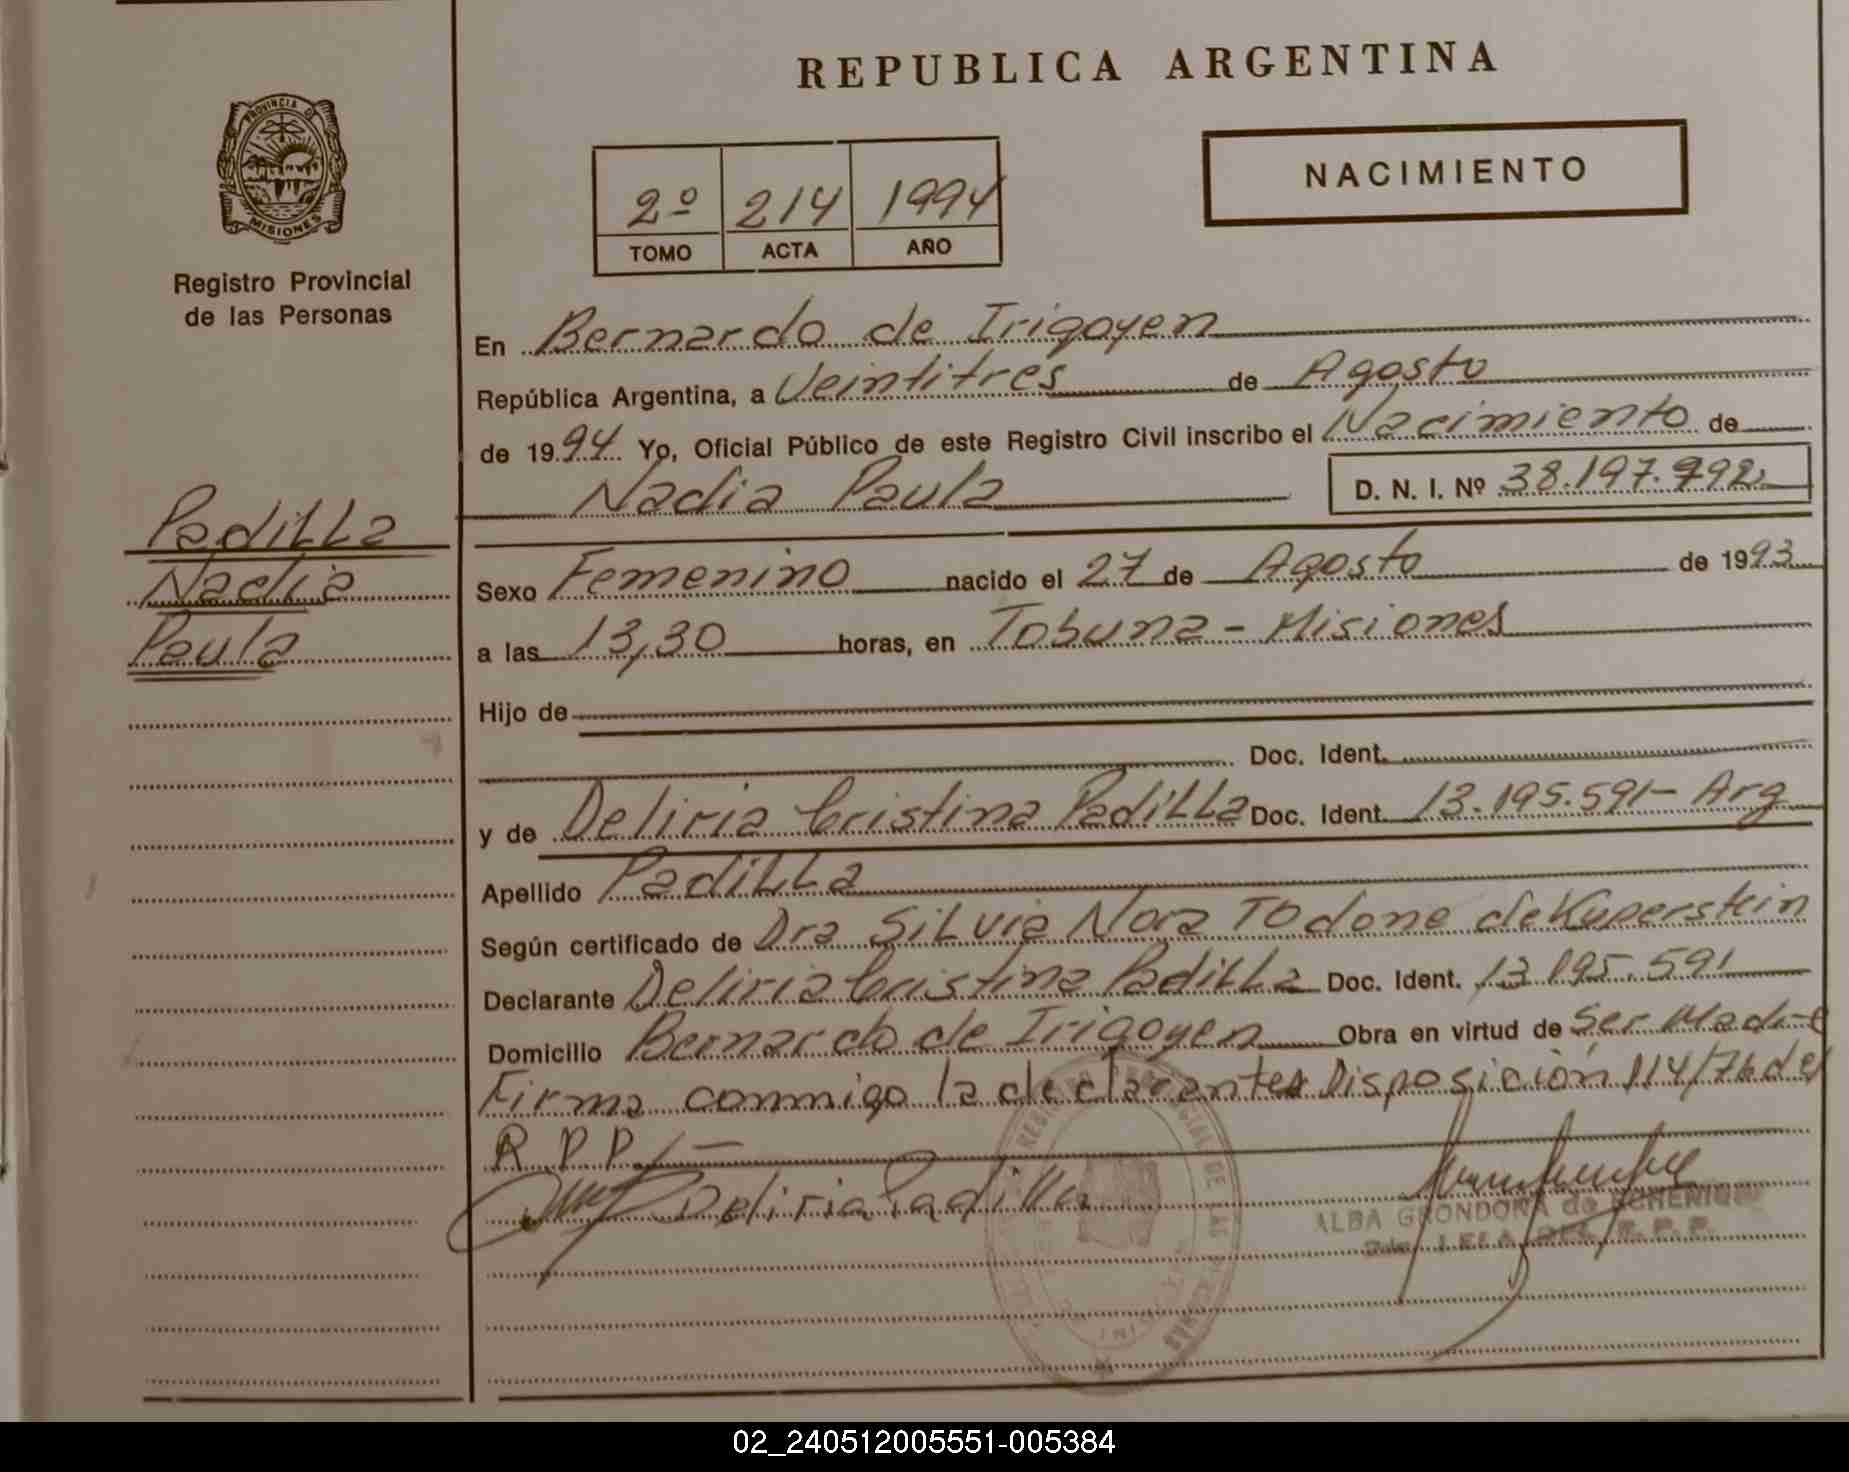 REPUBLICA ARGENTINA
PROVINCIA DE
MISIONES
Registro Provincial
de las Personas
NACIMIENTO
2º 214 1994
TOMO ACTA AÑO
En Bernardo de Irigoyen
República Argentina, a Veintitres de Agosto
de 1994 Yo, Oficial Público de este Registro Civil inscribo el Nacimiento de
Nadia Paula D. N. I. Nº 38.197.992
Padilla
Nadia
Paula
Sexo Femenino nacido el 27 de Agosto de 1993
a las 13,30 horas, en Tobuna - Misiones
Hijo de
Doc. Ident.
y de Deliria Cristina Padilla Doc. Ident. 13.195.591- Arg
Apellido Padilla
Según certificado de Dra Silvia Nora Todone de Kuperstein
Declarante Deliria Cristina Padilla Doc. Ident. 13.195.591
Domicilio Bernardo de Irigoyen Obra en virtud de Ser Madre
Firma conmigo la declarante Disposición 114/76 del
R P P
Deliria Padilla
REGISTRO PROVINCIAL DE LAS PERSONAS
ALBA GRONDONA de
R. P. P.
02_240512005551-005384